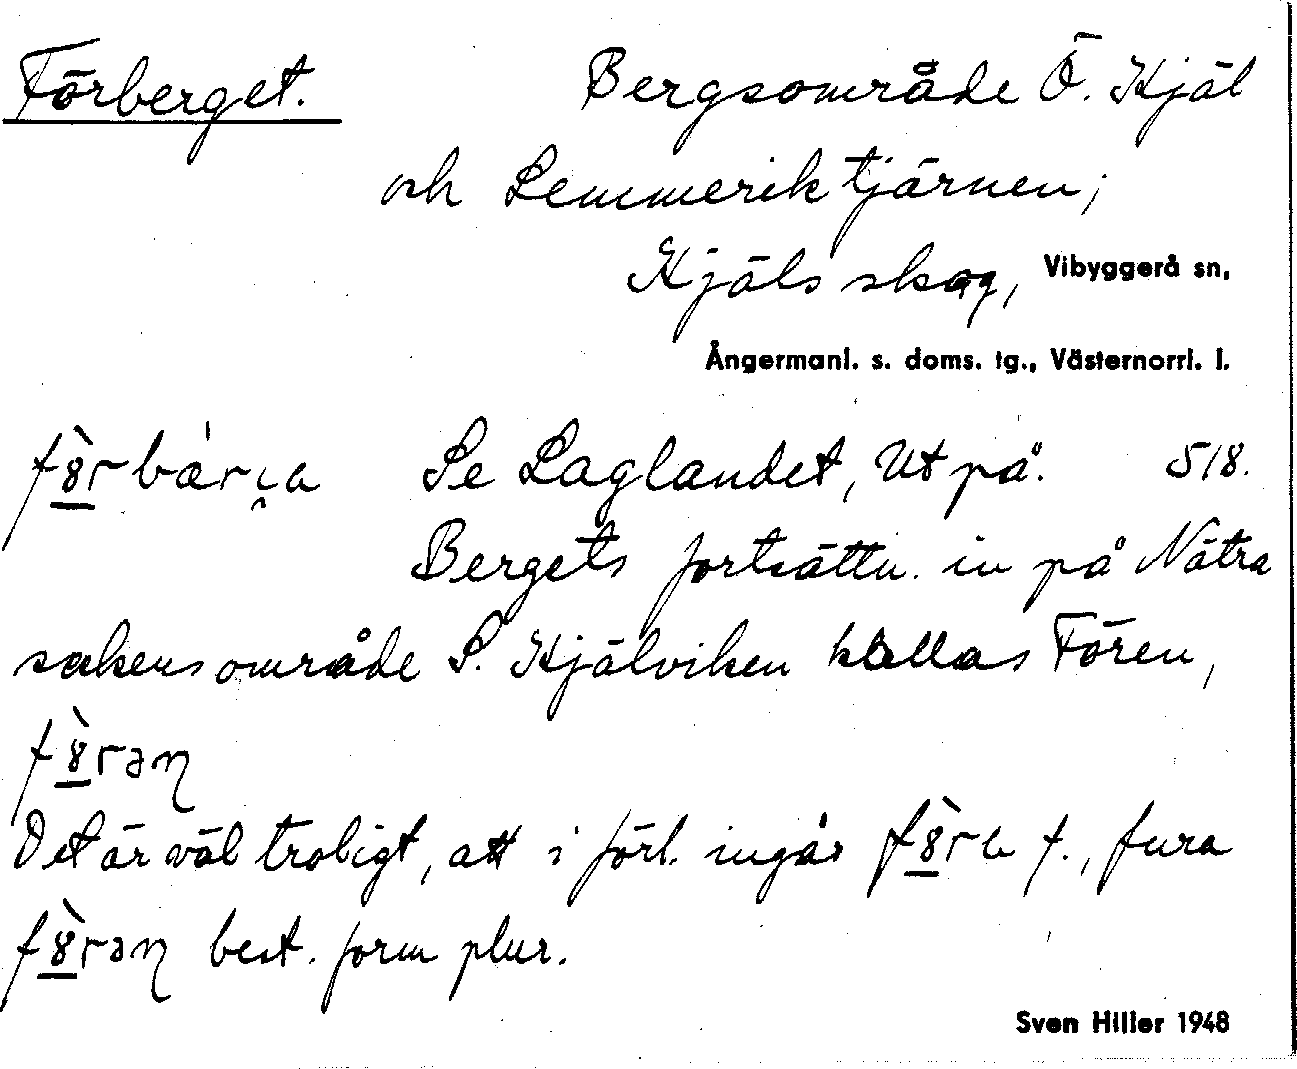 Förberget. Bergsområde Ö. Kjäl
och Lemmeriktjärnen;
Kjäls skog, Vibyggerå sn,
Ångermanl. s. doms. tg., Västernorrl. l.
fȣ̀rbær̨a Se Laglandet, Ut på. 518.
Bergets fortsättn. in på Nätra
sockens område S. Kjälviken kallas Fören,
fȣ̀raŋ
Det är väl troligt, att i förl. ingår fȣ̀ra f., fura
fȣ̀raŋ best. form plur.
Sven Hiller 1948